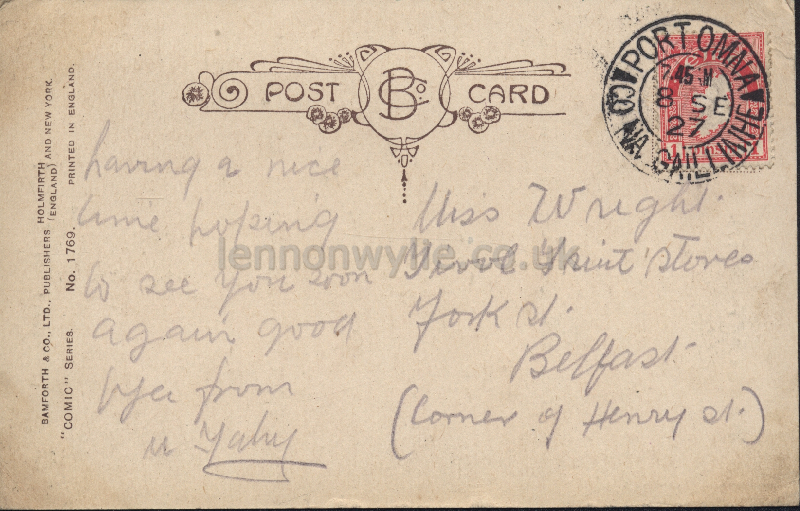 BAMFORTH & CO., LTD., PUBLISHERS, HOLMFIRTH (ENGLAND) AND NEW YORK.
"COMIC" SERIES. No. 1769. PRINTED IN ENGLAND.
POST CARD
B Co
PORT OMNA
CO NA GAILLIMHE
45
8 SE
27
having a nice
time hoping
to see you soon
again good
bye from
Miss Wright.
Stores
York St.
Belfast.
(Corner of Henry St.)
lennonwylie.co.uk